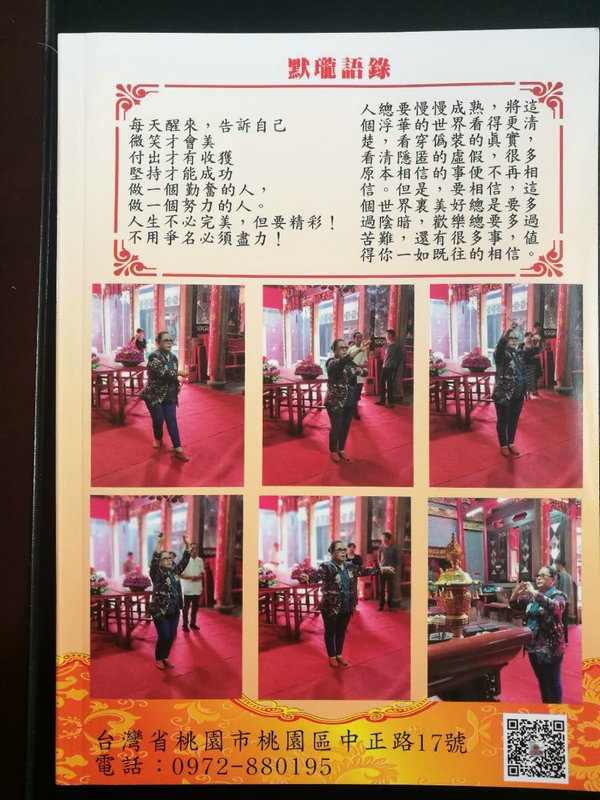 默瓏語錄
每天醒來，告訴自己
微笑才會美
付出才有收獲
堅持才能成功
做一個勤奮的人，
做一個努力的人。
人生不必完美，但要精彩！
不用爭名必須盡力！
人總要慢慢成熟，將這
個浮華的世界看得更清
楚，看穿偽裝的真實，
看清隱匿的虛假，很多
原本相信的事便不再相
信。但是，要相信，這
個世界裏美好總是要多
過陰暗，歡樂總要多過
苦難，還有很多事，值
得你一如既往的相信。
台灣省桃園市桃園區中正路17號
電話：0972-880195